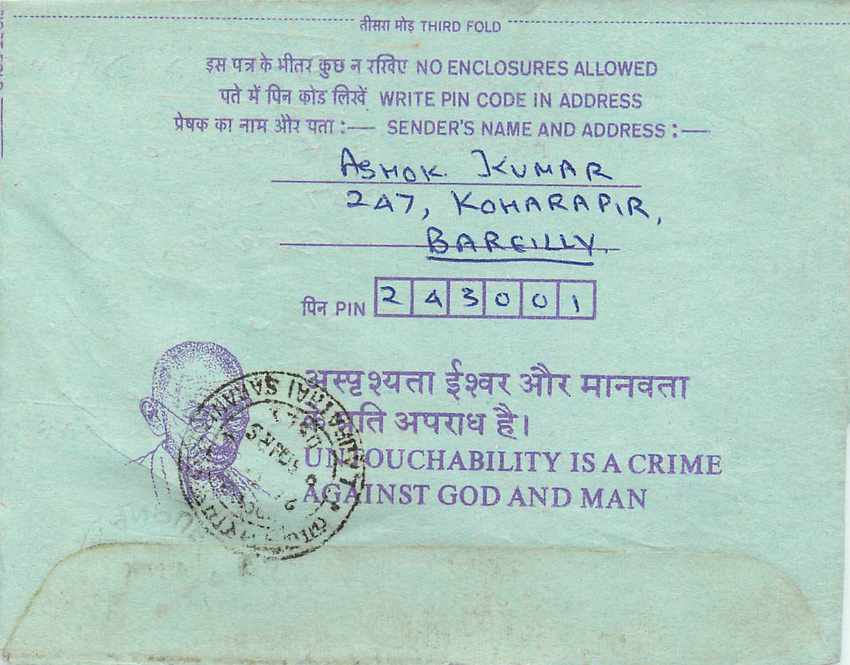 तीसरा मोड़ THIRD FOLD
इस पत्र के भीतर कुछ न रखिए NO ENCLOSURES ALLOWED
पते में पिन कोड लिखें WRITE PIN CODE IN ADDRESS
प्रेषक का नाम और पता :— SENDER'S NAME AND ADDRESS :—
ASHOK KUMAR
247, KOHARAPIR,
BAREILLY.
पिन PIN 243001
अस्पृश्यता ईश्वर और मानवता
के प्रति अपराध है।
UNTOUCHABILITY IS A CRIME
AGAINST GOD AND MAN